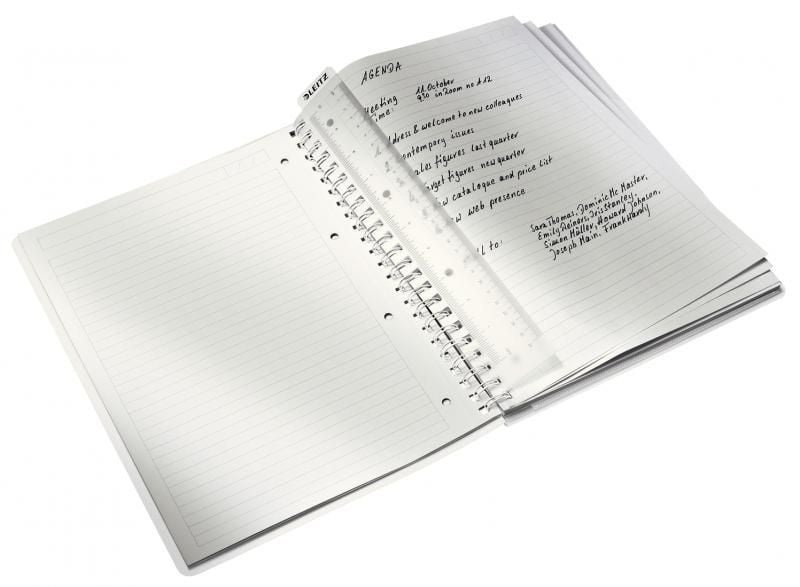 LEITZ
AGENDA
Meeting 11. October
Time: 9³⁰ in Room no 112
Address & welcome to new colleagues
Contempory issues
Sales figures last quarter
Target figures new quarter
catalogue and price list
web presence
to:
Sara Thomas, Dominic Mc Master,
Emily Reiners, Iris Stanley,
Simon Müller, Howard Johnson,
Joseph Main, Frank Hardy